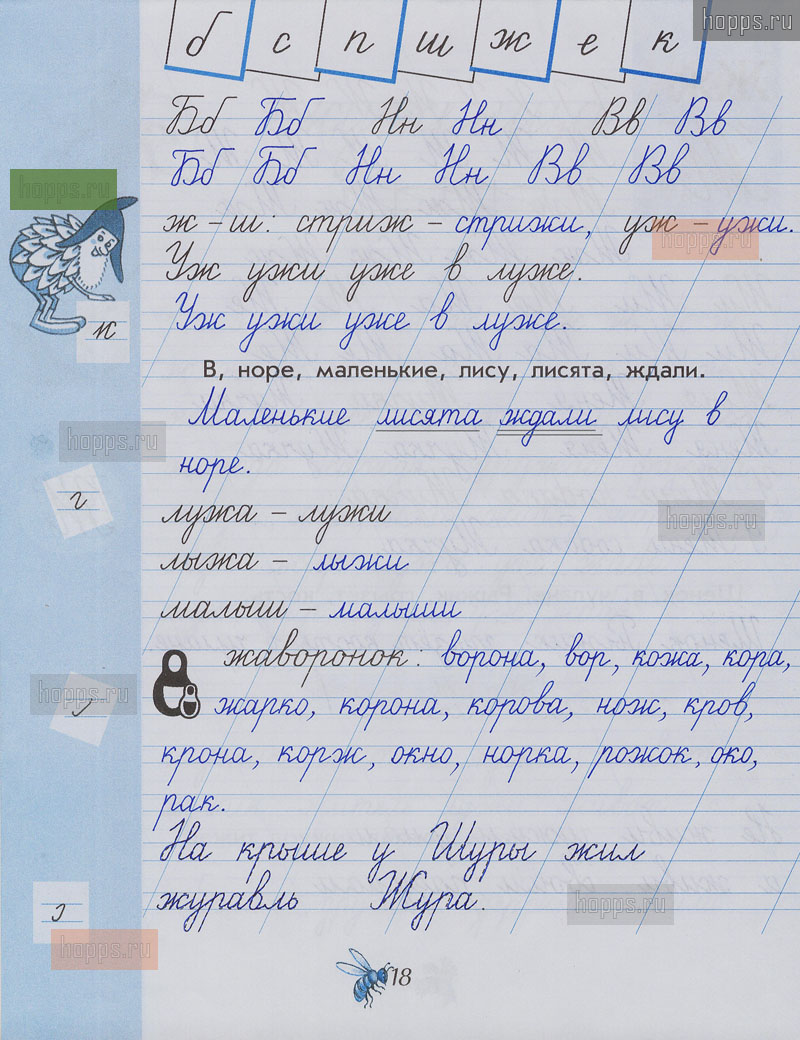 б с п ш ж е к
hopps.ru
Бб Бб Нн Нн Вв Вв
Бб Бб Нн Нн Вв Вв
hopps.ru
ж – ш: стриж – стрижи, уж – ужи.
hopps.ru
Уж ужи уже в луже.
Уж ужи уже в луже.
к
В, норе, маленькие, лису, лисята, ждали.
Маленькие лисята ждали лису в
hopps.ru
норе.
г
лужа – лужи
hopps.ru
лыжа – лыжи
малыш – малыши
жаворонок: ворона, вор, кожа, кора,
hopps.ru
жарко, корона, корова, нож, кров,
крона, корж, окно, норка, рожок, око,
рак.
На крыше у Шуры жил
журавль Жура.
hopps.ru
hopps.ru
18